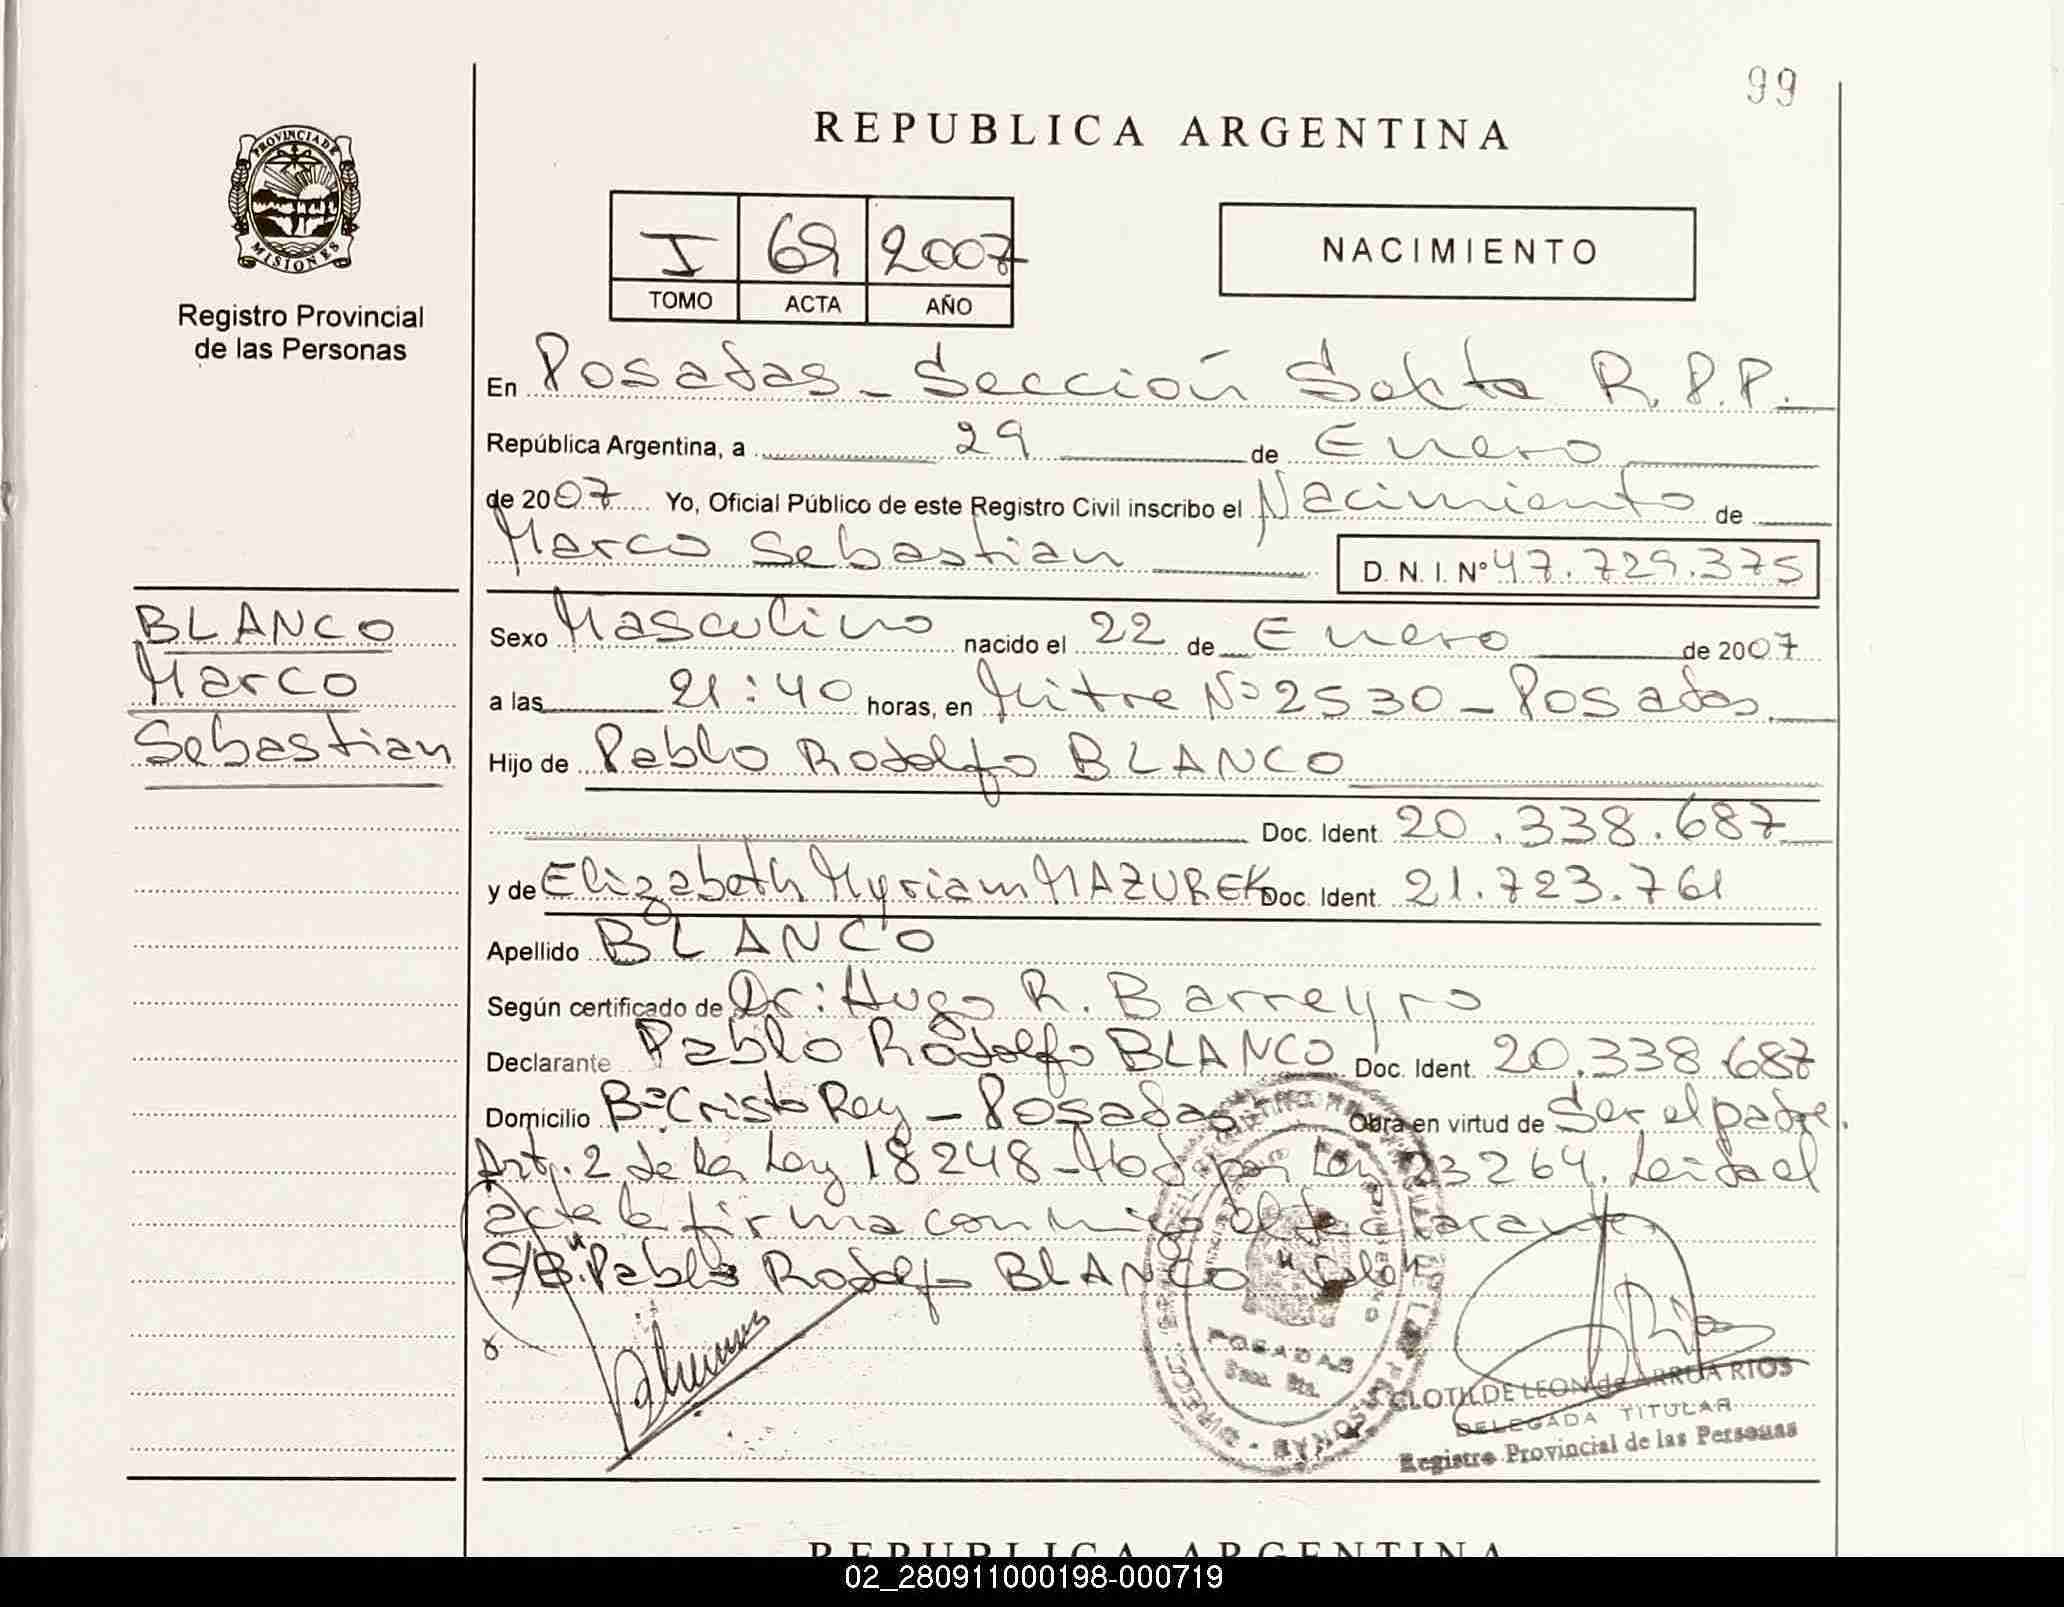 99
REPUBLICA ARGENTINA
PROVINCIA DE
MISIONES
Registro Provincial
de las Personas
I 69 2007
TOMO ACTA AÑO
NACIMIENTO
En Posadas - Sección Sexta R.P.P.
República Argentina, a 29 de Enero
de 2007 Yo, Oficial Público de este Registro Civil inscribo el Nacimiento de
Marco Sebastian D. N. I. Nº 47.729.375
BLANCO
Marco
Sebastian
Sexo Masculino nacido el 22 de Enero de 2007
a las 21:40 horas, en Mitre Nº 2530 - Posadas
Hijo de Pablo Rodolfo BLANCO
Doc. Ident. 20.338.687
y de Elizabeth Myriam MAZUREK Doc. Ident. 21.723.761
Apellido BLANCO
Según certificado de Dr: Hugo R. Barreyro
Declarante Pablo Rodolfo BLANCO Doc. Ident. 20.338.687
Domicilio Bº Cristo Rey - Posadas Obra en virtud de Ser el padre.
Art. 2 de la Ley 18248 - Mod por Ley 23264. Leida el
acta la firma conmigo el declarante.
S/B: "Pablo Rodolfo BLANCO" Vale.
POSADAS
Secc. 6ta.
CLOTILDE LEON de ARRUA RIOS
DELEGADA TITULAR
Registro Provincial de las Personas
REPUBLICA ARGENTINA
02_280911000198-000719